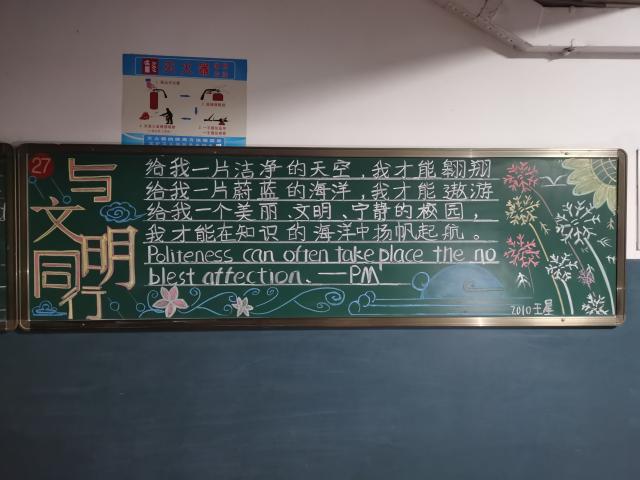 27
与文明同行
给我一片洁净的天空,我才能翱翔
给我一片蔚蓝的海洋,我才能遨游
给我一个美丽、文明、宁静的校园,
我才能在知识的海洋中扬帆起航。
Politeness can often take place the no
blest affection. —PM
2010 王星